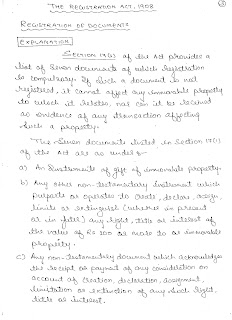 THE REGISTRATION ACT, 1908
REGISTRATION OF DOCUMENTS
EXPLANATION
SECTION 17(1) of the Act provides a
list of Seven documents of which registration
is compulsory. If such a document is not
registered, it cannot affect any immovable property
to which it relates, nor can it be received
as evidence of any transaction affecting
such a property.
The Seven documents listed in Section 17(1)
of the Act are as under:-
a) An Instruments of gift of immovable property.
b) Any other non-testamentary instrument which
purports or operates to create, declare, assign,
limit or extinguish (whether in present
or in future) any right, title or interest of
the value of Rs 100 or more to or immovable
property.
c) Any non-testamentary document which acknowledges
the receipt or payment of any consideration
on account of creation, declaration, assignment,
limitation or extinction of any such right,
title or interest.